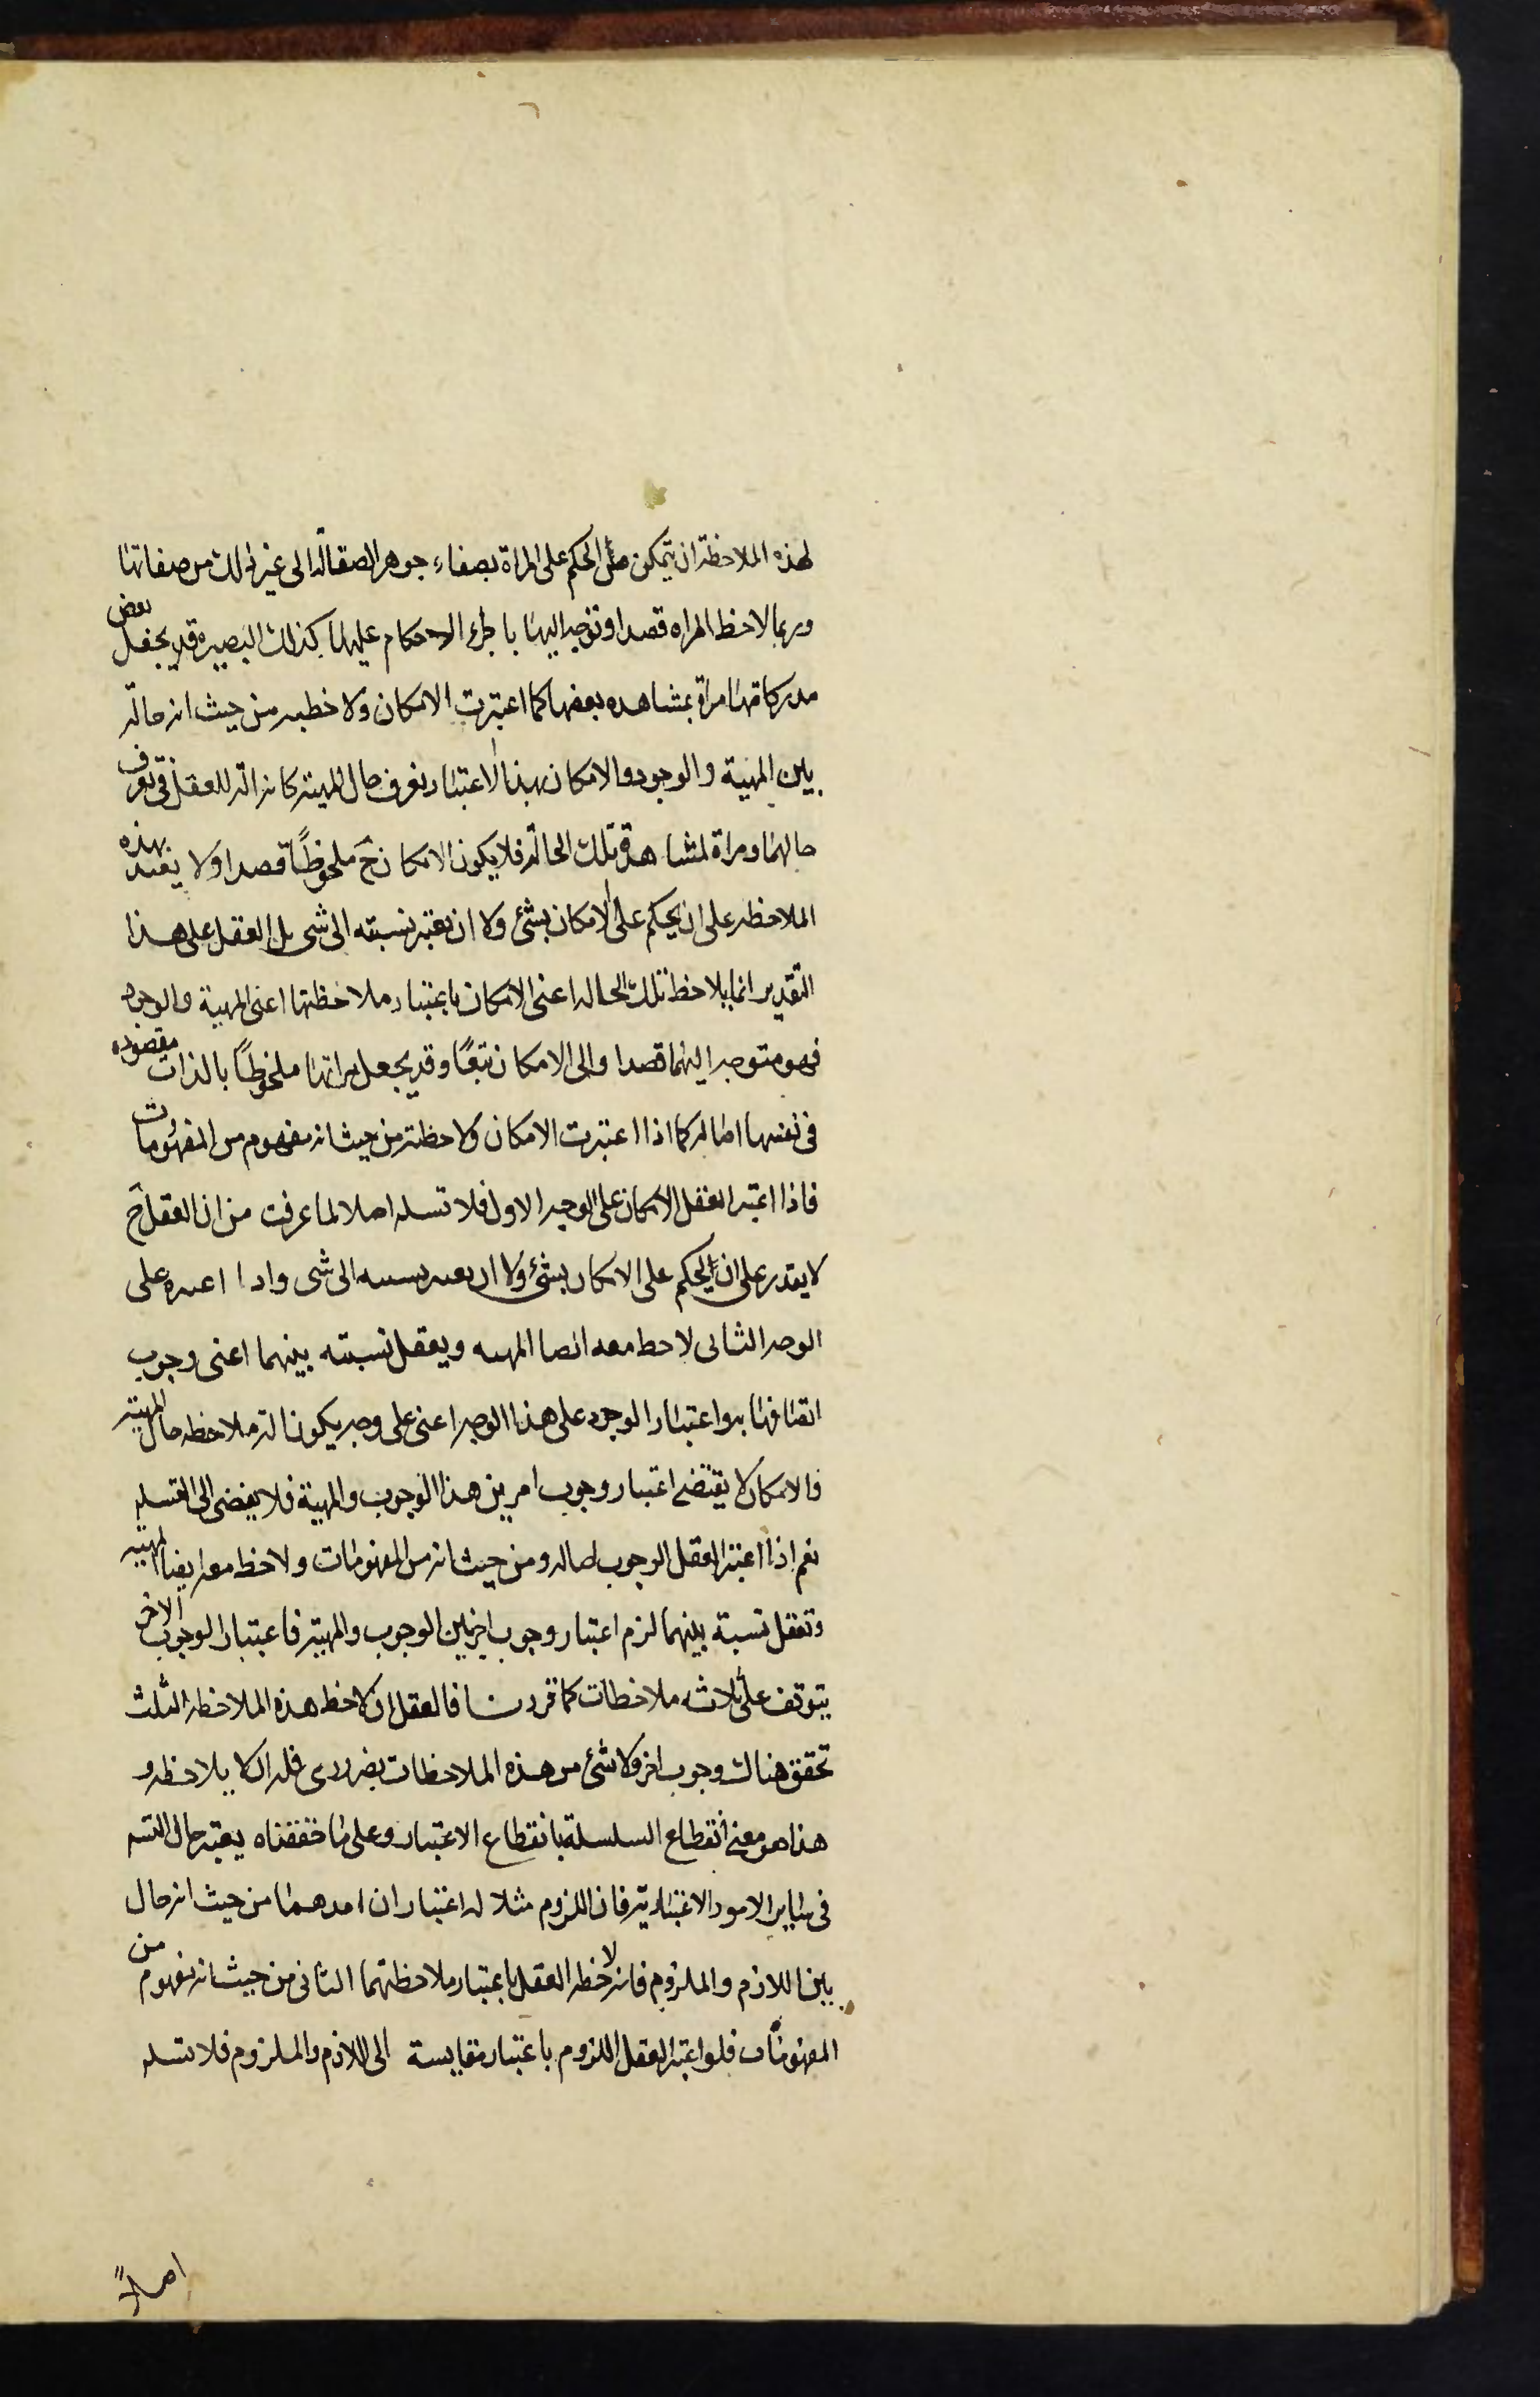 لهذه الملاحظة ان يتمكن من الحكم على المراة بصفاء جوهر الصقالة الى غير ذلك من صفاتها
وربما لاحظ المراه قصدا وتوجه اليها باجراء الاحكام عليها كذلك البصيرة قد يجعل بعض
مدركاتها مراة بمشاهده بعضها كما اعتبرت الامكان ولاحظته من حيث انه حالة
بين المهية والوجود والامكان بهذا الاعتبار يعرف حال المهية كانه الة للعقل فى تعرف
حالهما ومراة لمشاهدة تلك الحالة فلا يكون الامكان ح ملحوظًا قصدا ولا يفيد بهذه
الملاحظه على ان يحكم على الامكان بشئ ولا ان يعتبر نسبته الى شى بل العقل على هذا
التقدير انما يلاحظ تلك الحاله اعنى الامكان باعتبار ملاحظتها اعنى المهية والوجود
فهو متوجه اليهما قصدا والى الامكان تبعًا وقد يجعل مراتها ملحوظًا بالذات مقصوده
فى نفسها اصاله كما اذا اعتبرت الامكان ولاحظته من حيث انه مفهوم من المفهومات
فاذا اعتبر العقل الامكان على الوجه الاول فلا تسله اصلا لما عرفت من ان العقل ح
لا يقدر على ان يحكم على الامكان بشئ ولا ان يعتبر نسبته الى شى واذا اعتبره على
الوجه الثانى لاحظ معه ايضا المهيه ويعقل نسبته بينهما اعنى وجوب
اتصافها به واعتبار الوجود على هذا الوجه اعنى على وجه يكون الة ملاحظه حال المهية
والامكان لا يقتضى اعتبار وجوب امر بين هذا الوجوب والمهية فلا يفضى الى التسله
نعم اذا اعتبر العقل الوجوب اصاله ومن حيث انه من المفهومات ولاحظ معه ايضا المهية
وتعقل نسبة بينهما لزم اعتبار وجوب اخر بين الوجوب والمهية فاعتبار الوجوب الاخر
يتوقف على ثلاثه ملاحظات كما قررنا فالعقل ان لاحظ هذه الملاحظه الثلث
تحقق هناك وجوب اخر ولا شئ من هذه الملاحظات بضرورى فله ان لا يلاحظه و
هذا هو معنى انقطاع السلسلة بانقطاع الاعتبار وعلى ما حققناه يعتبر حال التسه
فى ساير الامور الاعتبارية فان اللزوم مثلا له اعتباران احدهما من حيث انه حال
بين اللازم والملزوم فانه لاحظه العقل باعتبار ملاحظتهما الثانى من حيث انه مفهوم من
المفهومات فلو اعتبر العقل اللزوم باعتبار مقايسة الى اللازم والملزوم فلا تسله
اصلاً